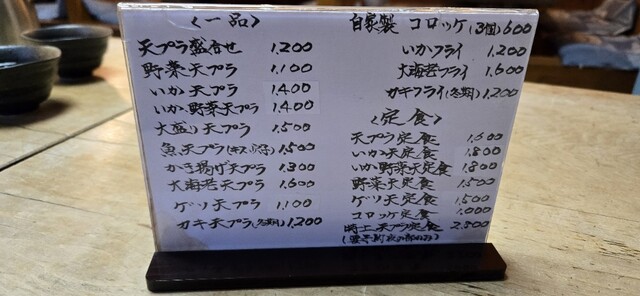 〈一品〉
天プラ盛合せ 1.200
野菜天プラ 1.100
いか天プラ 1.400
いか野菜天プラ 1.400
大盛り天プラ 1.500
魚天プラ 1.500
かき揚げ天プラ 1.300
大海老天プラ 1.600
ゲソ天プラ 1.100
カキ天プラ(冬期) 1.200
自家製 コロッケ(3個) 600
いかフライ 1.200
大海老フライ 1.600
カキフライ(冬期) 1.200
〈定食〉
天プラ定食 1.600
いか天定食 1.800
いか野菜天定食 1.800
野菜天定食 1.500
ゲソ天定食 1.500
コロッケ定食 1.000
特上天プラ定食 2.800